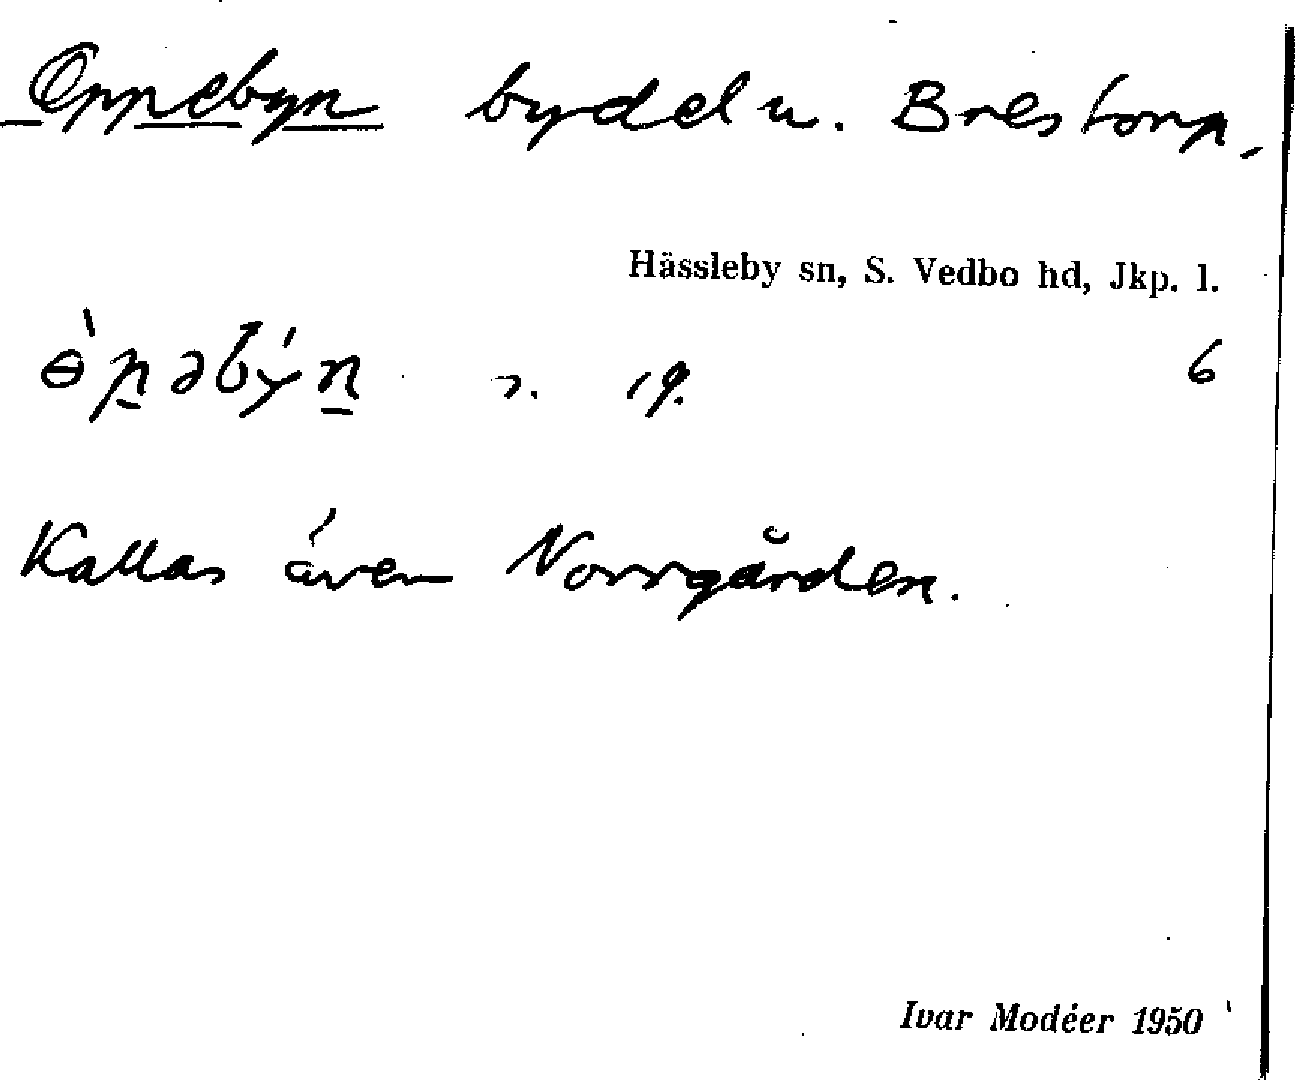 Oppebyn bydel u. Brestorp,
Hässleby sn, S. Vedbo hd, Jkp. l.
ɵ̀p̠əbýn̠ 19. 6
Kallas även Norrgården.
Ivar Modéer 1950